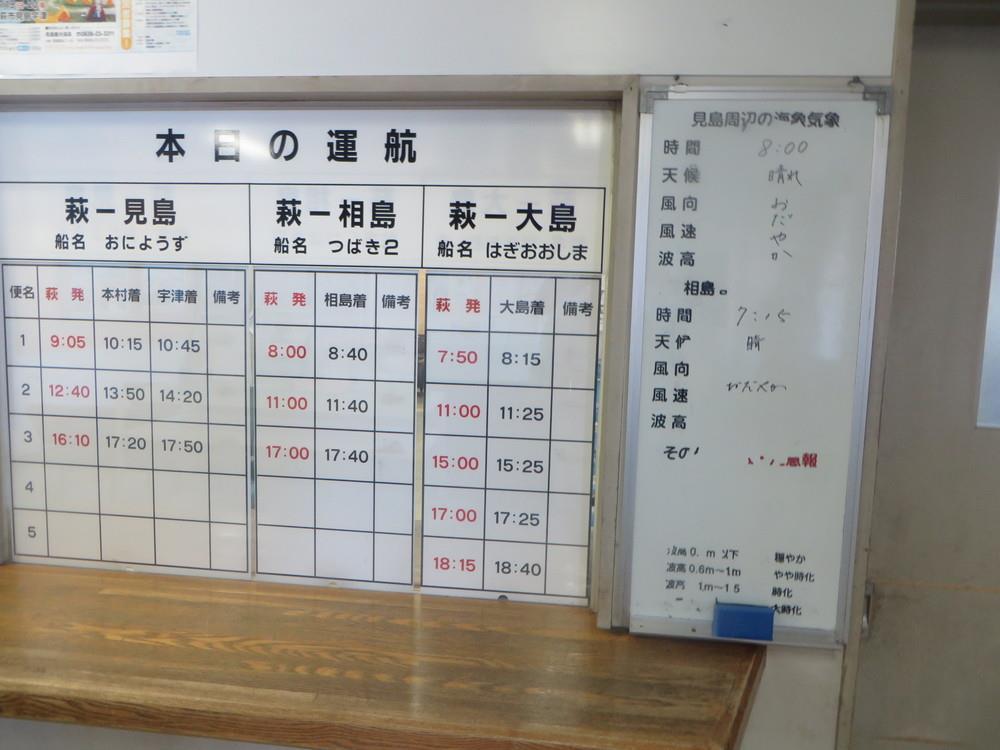 本日の運航
萩ー見島
船名 おにようず
便名 萩発 本村着 宇津着 備考
1 9:05 10:15 10:45
2 12:40 13:50 14:20
3 16:10 17:20 17:50
4
5
萩ー相島
船名 つばき2
萩発 相島着 備考
8:00 8:40
11:00 11:40
17:00 17:40
萩ー大島
船名 はぎおおしま
萩発 大島着 備考
7:50 8:15
11:00 11:25
15:00 15:25
17:00 17:25
18:15 18:40
見島周辺の海象気象
時間 8:00
天候 晴れ
風向
風速
波高
おだやか
相島
時間 7:15
天候 晴
風向
風速 おだやか
波高
波高0. m 以下 穏やか
波高0.6m～1m やや時化
波高 1m～1 5 時化
大時化